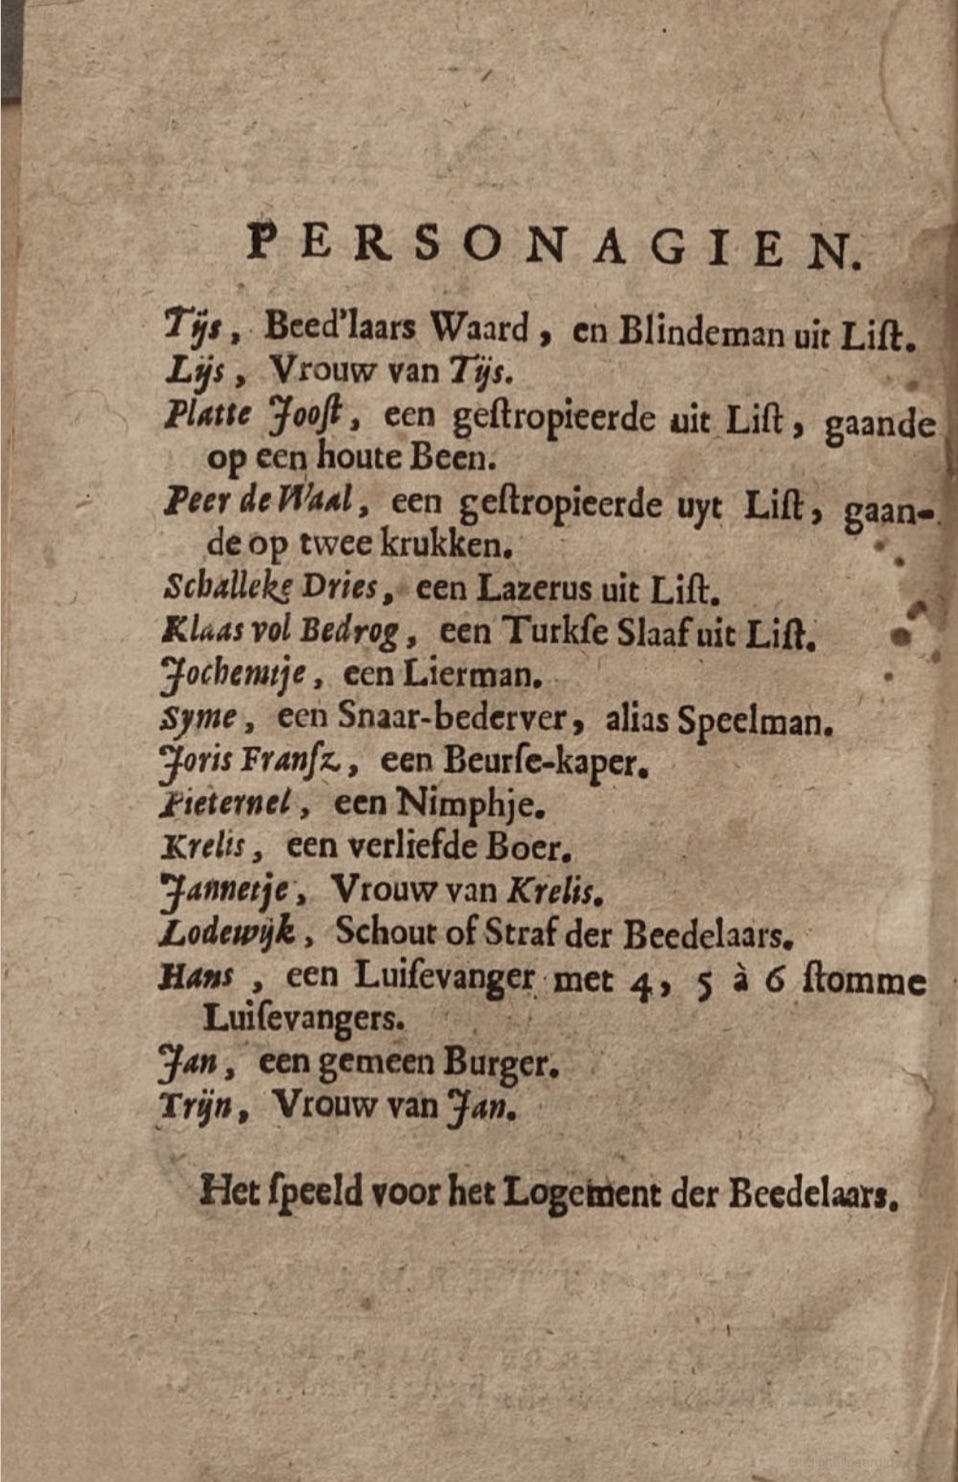 PERSONAGIEN.
Tijs, Beed'laars Waard, en Blindeman uit Liſt.
Lijs, Vrouw van Tijs.
Platte Jooſt, een geſtropieerde uit Liſt, gaande
op een houte Been.
Peer de Waal, een geſtropieerde uyt Liſt, gaan-
de op twee krukken.
Schalleke Dries, een Lazerus uit Liſt.
Klaas vol Bedrog, een Turkſe Slaaf uit Liſt.
Jochemtje, een Lierman.
Syme, een Snaar-bederver, alias Speelman.
Joris Franſz, een Beurſe-kaper.
Pieternel, een Nimphje.
Krelis, een verliefde Boer.
Jannetje, Vrouw van Krelis.
Lodewijk, Schout of Straf der Beedelaars.
Hans, een Luiſevanger met 4, 5 à 6 ſtomme
Luiſevangers.
Jan, een gemeen Burger.
Trijn, Vrouw van Jan.
Het ſpeeld voor het Logement der Beedelaars.